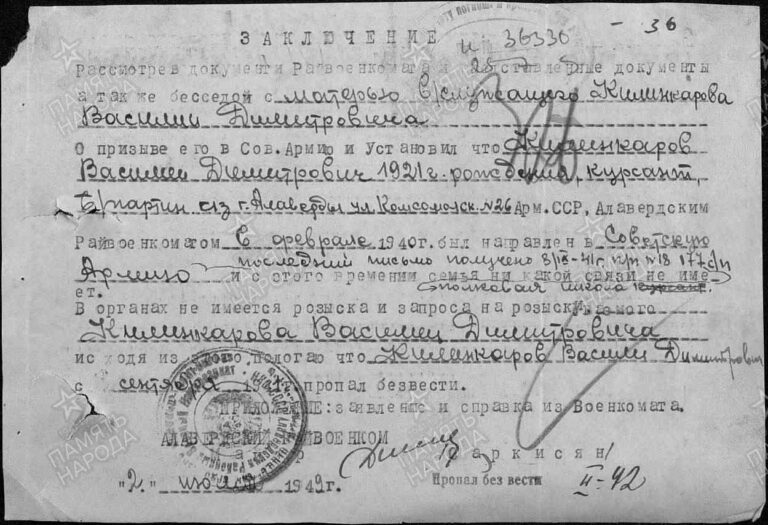 - 36
ЗАКЛЮЧЕНИЕ
и 36336
Рассмотрев документи Райвоенкомата и представленные документы
а так же бесседой с матерью в/служащего Килинкарова
Василия Димитровича
О призыве его в Сов.Армию и Установил что Килинкаров
Василий Димитрович 1921 г. рождения, курсант,
б/партии из г. Алаверды ул Комсомольск. №26 Арм.ССР, Алавердским
Райвоенкоматом в феврале 1940г. был направлен в Советскую
последний письмо получено 8/IX-41г. п/п №18 177 с/п
Армию и с этого времении семья ни какой связи не име-
полковая школа курсант.
ет.
В органах не имеется розыска и запроса на розыскиваемого
Килинкарова Василия Димитровича
ис ходя из пологаю что Килинкаров Василий Димитрович
с сентября 194 г. пропал безвести.
ПРИЛОЖЕНИЕ: заявление и справка из Военкомата.
АЛАВЕРДСКИЙ РАЙВОЕНКОМ
/Саркисян/
"2." июля 1949г.
Пропал без вести II-42
ПАМЯТЬ НАРОДА